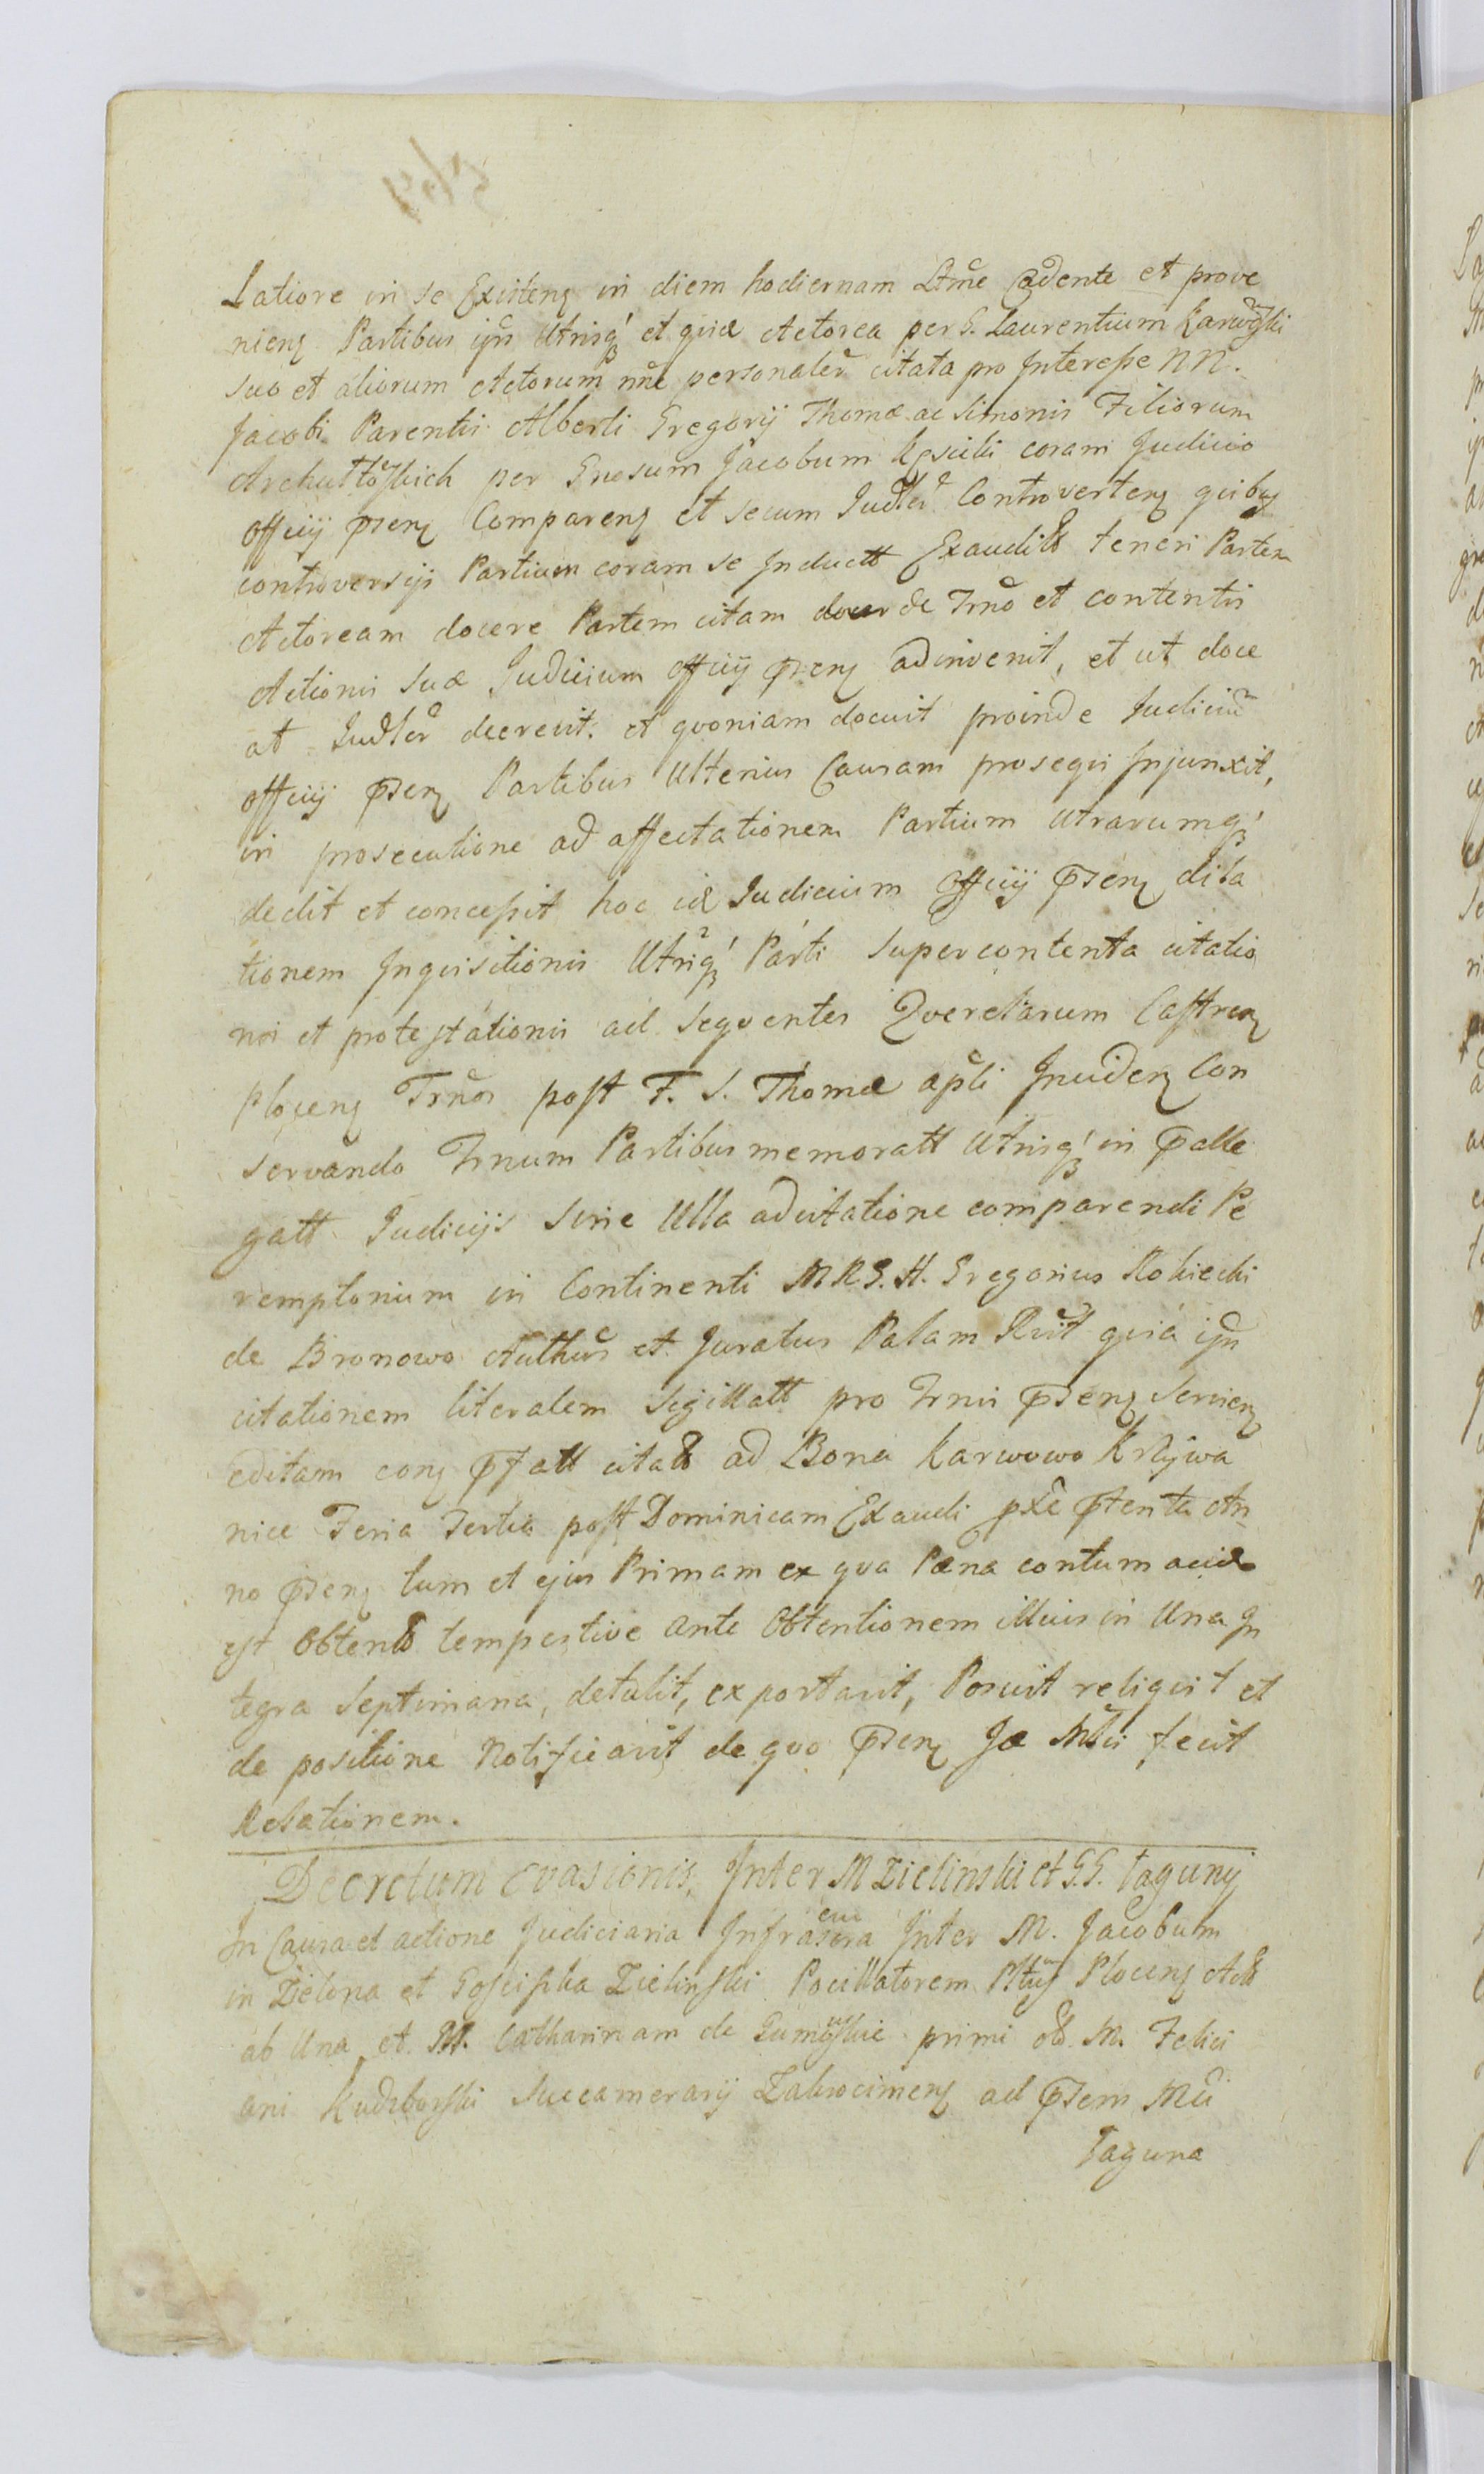 Latiore in se Existenz in diem hodiernam Ltme Cadente et prove
nienz Partibus ijsd Utrisq et quia Actorea per G. Laurentium Karwoski
suo et aliorum Actorum nne personaler citata pro Interesse NN.
Jacobi Parentis Alberti Gregorij Thomæ ac Simonis Filiorum
per Gnosum Jacobum coram Judicio
officij psenz Comparenz et secum Judler Controvertenz quibus
controversijs Partium coram se Inductt Exauditt teneri Partem
Actoream docere Partem citam de Trno et contentis
Actionis suæ Judicium officij psenz adinvenit, et ut doce
at Judler decrevit. et quoniam docuit proinde Judiciu
officij psenz Partibus Ulterius Causam prosequi Injunxit,
in prosecutione ad affectationem Partium utrarumq
dedit et concessit hoc id Judicium Officij psenz dila
tionem Inquisitionis Utriq Parti Super contenta citatio
nis et protestationis ad Sequentes Querelarum Castrenz
Plocenz Trnos post F. S. Thomæ apli Incidenz Con
servando Trnum Partibus memoratt Utrisq in palle
gatt Judicijs sine Ulla adcitatione comparendi Pe
remptorium in Continenti MRS. H. Gregorius Rokicki
de Bronowo Authus et Juratus Palam Rvit quia ijsd
citationem literalem Sigillatt pro Trnis psenz servienz
editam conz pfatt citatt ad Bona Karwowo Krzywa
nice Feria Tertia post Dominicam Exaudi pxe ptenta An
no psenz tum et ejus Primam ex qva Pæna contumaciæ
est Obtentt tempestive ante Obtentionem illius in Una In
tegra Septimana, detulit, exportavit, Posuit reliquit et
de positione Notificavit de quo psenz Jæ Mlti fecit
Relationem.
Decretum Evasionis, Inter M Zielinski et GG. Taguny
In Causa et actione Judiciaria Infrascra Inter M. Jacobum
in Zielona et Gosciska Zielinski Pocillatorem Pltus Plocenz Actt
ab Una et M. Catharinam de primi M. Felici
ani Kudzborski Succamerarij Zakrocimenz ad psem Mci
Taguna